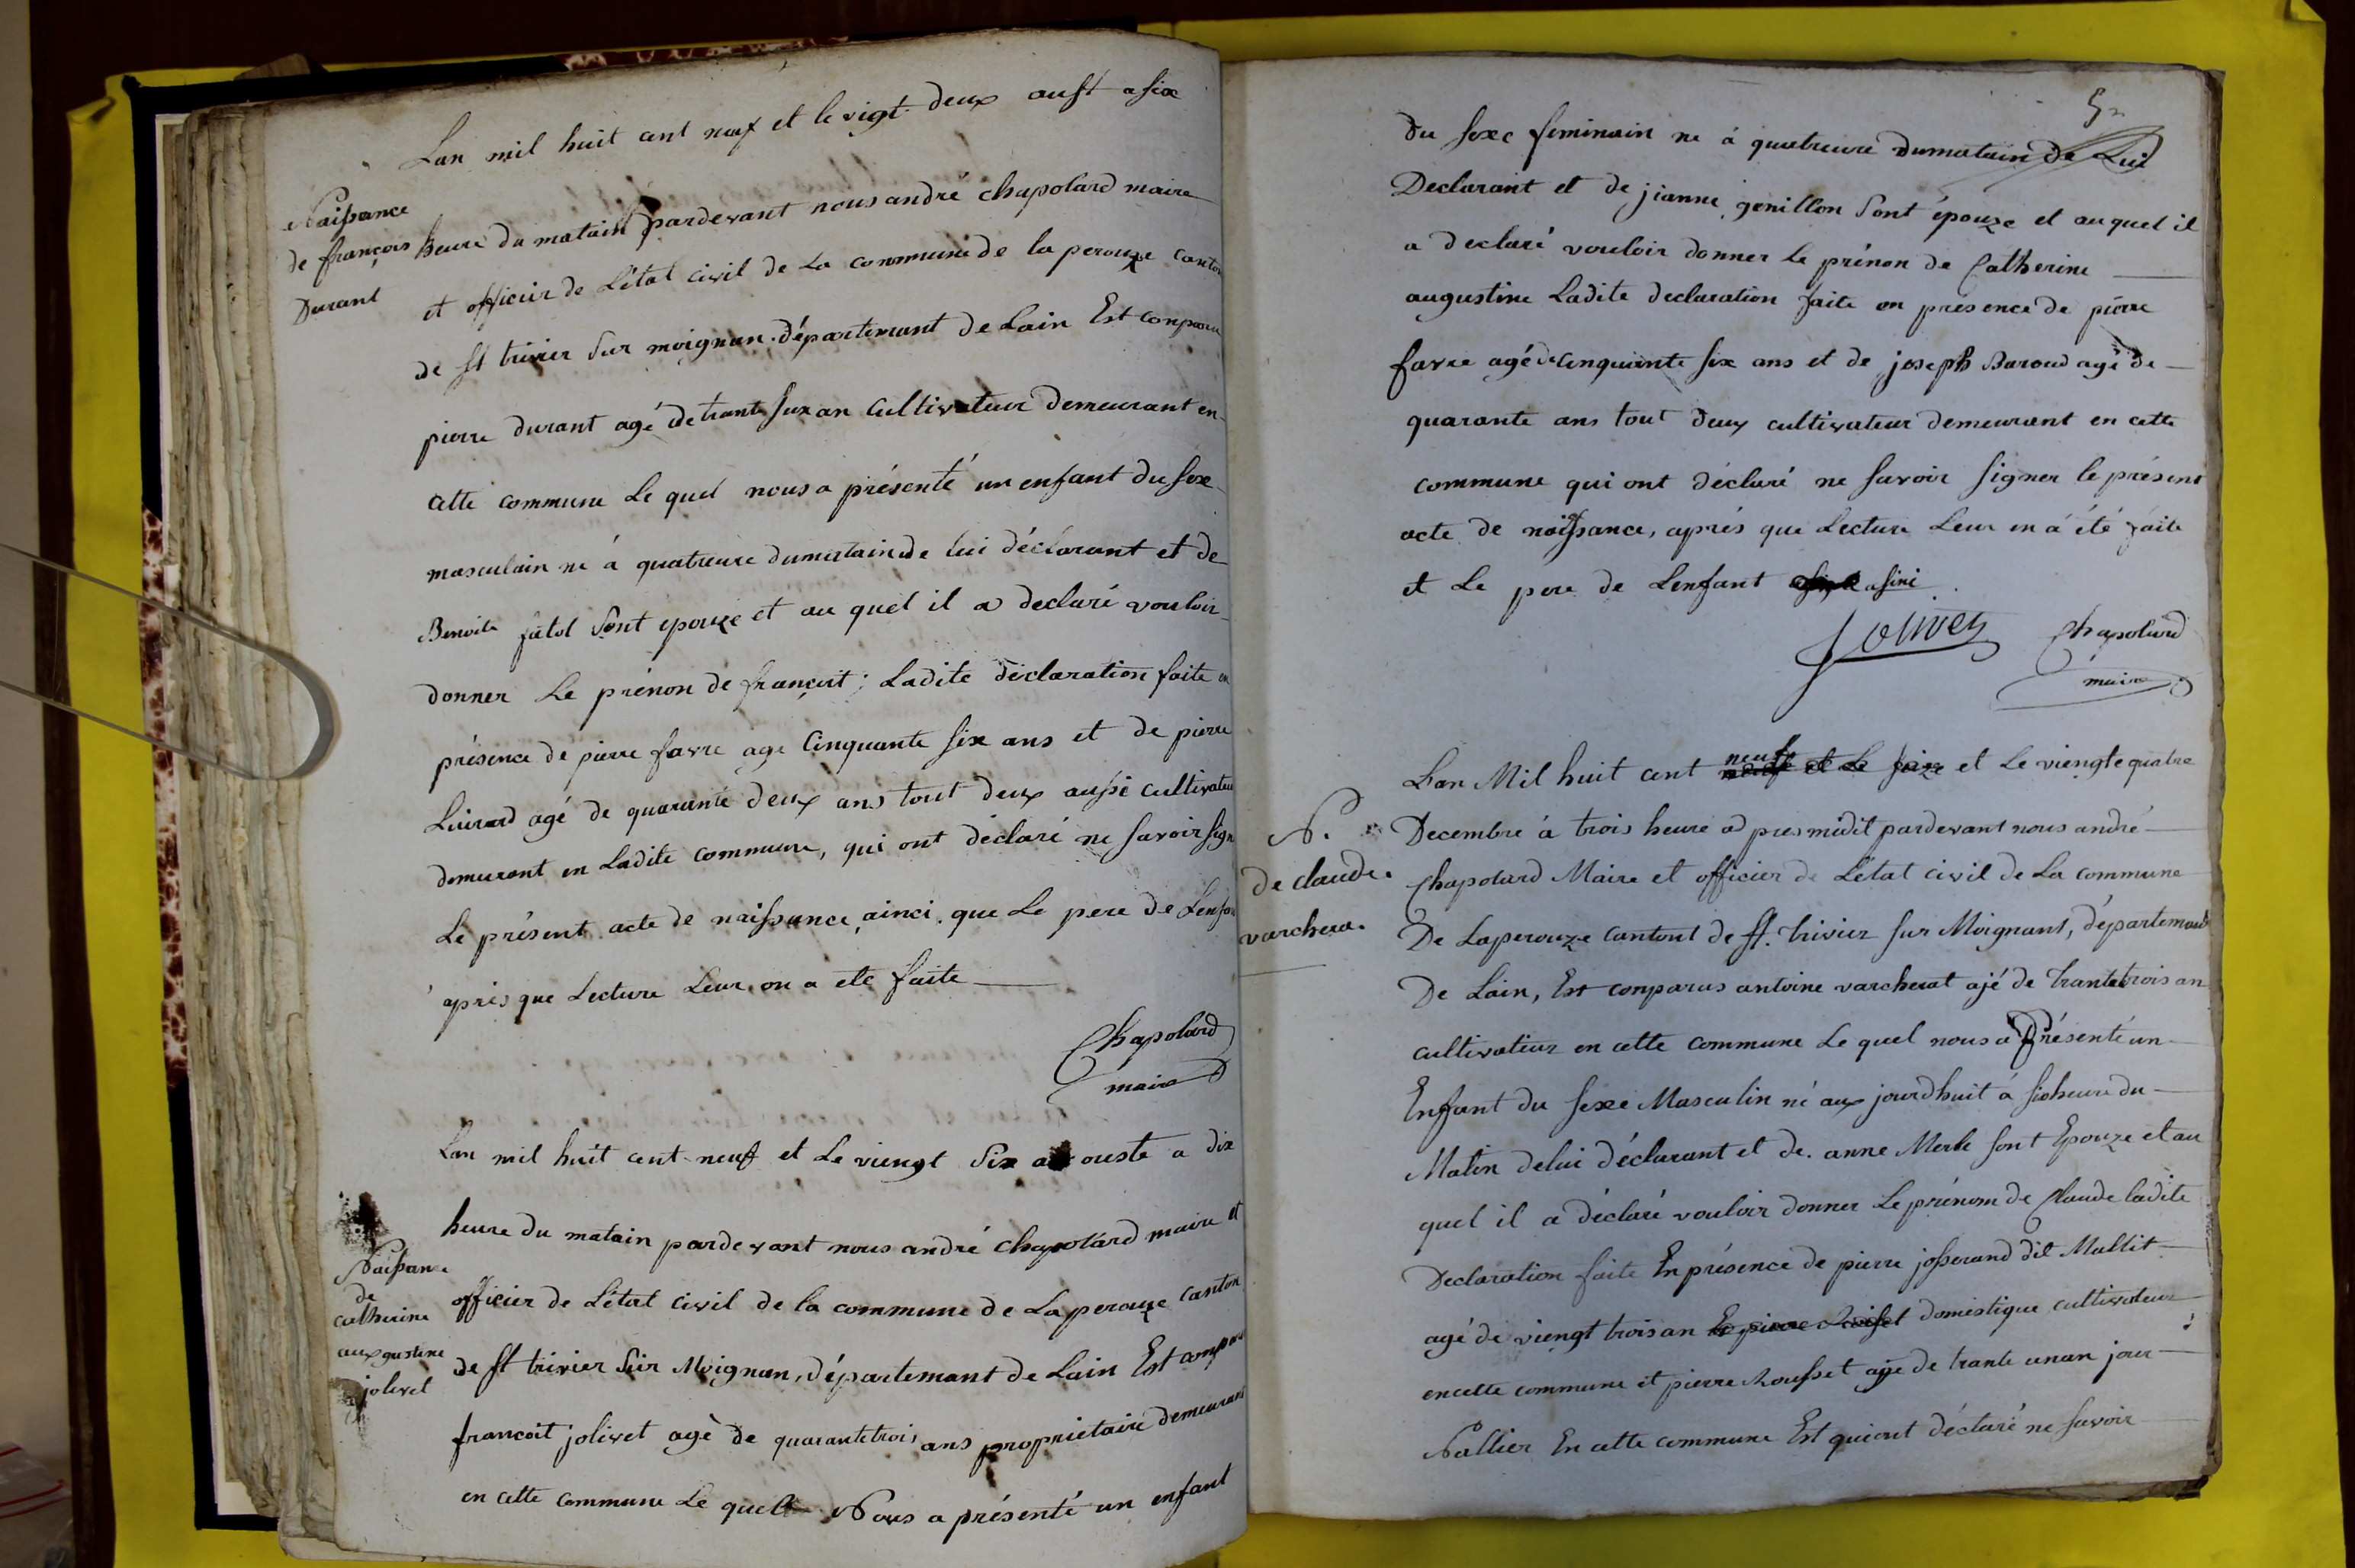 Lan mil huit cent neuf et le vigt deux aust a six
Naissance
de françois
Durant
heure du matain pardevant nous andré chapolard maire
et officier de Létat civil de La commune de la perouze canton
de st trivier Sur moignan département de Lain Est conparu
pierre durant agé de trante six an Cultivateur demeurant en
cette commune Le quel nous a présenté un enfant du sexe
masculain né à quatreure dumatain de lui déclarant et de
Benoite Sont epouze et au quel il a declaré vouloir
donner Le prénon de françoit ; Ladite déclaration faite en
présence de pierre favre age Cinquante six ans et de pierre
agé de quarante deux ans tout deux aussi cultivateur
demeurant en Ladite commune, qui ont déclaré ne savoir signe
Le présent acte de naissance, ainci que Le pere de Lenfan
aprés que Lecture Leur on a ete faite
Chapolard
maire
Lan mil huit cent neuf et Le viengt Six ouste a dix
Naissance
de
catherine
auxgustine
jolivet
heure du matain pardevant nous andré chapolard maire et
officier de Létat civil de la commune de Laperouze canton
de st trivier Sur Moignan, département de Lain Est conparu
francoit jolivet agé de quarantetrois ans propriétaire demeurant
en cette commune Le quel Nous a présenté un enfant
52
Du sexe feminain ne à quatreure dumatain de Lui
Declarant et de jianne genillon Sont épouze et au quel il
a declaré vouloir donner le prénon de Catherine
augustine Ladite declaration faite en présence de pierre
favre agé de Cinquante six ans et de joseph Baroud agé de
quarante ans tout deux cultivateur demeurant en cette
commune qui ont déclaré ne savoir signer le présent
acte de naissance, aprés que Lecture Leur en à été faite
et Le pere de Lenfant asiné
Jolivet Chapolard
maire
Lan Mil huit cent neuf et Le seize et Le viengte quatre
N.
de claude
varchera
Decembre à trois heure a pres midit pardevant nous andré
Chapolard Maire et officier de Létat civil de La commune
De Laperouze cantont de st. trivier sur Moignant, département
De Lain, Est conparus antoine varcherat ajé de trante trois an
cultivateur en cette commune Le quel nous a Présenté un
Enfant du sexe Masculin né aux jourdhuit à sixheure du
Matin delui déclarant et de anne Merle sont Epouze et au
quel il a déclaré vouloir donner Le prénom de Claude ladite
Declaration faite En présence de pierre josserand dit Mallit
agé de viengt trois an domestique cultivateur
encette commune et pierre Rousset agé de trante unan jour
Nallier En cette commune Est quiont déclaré ne savoir